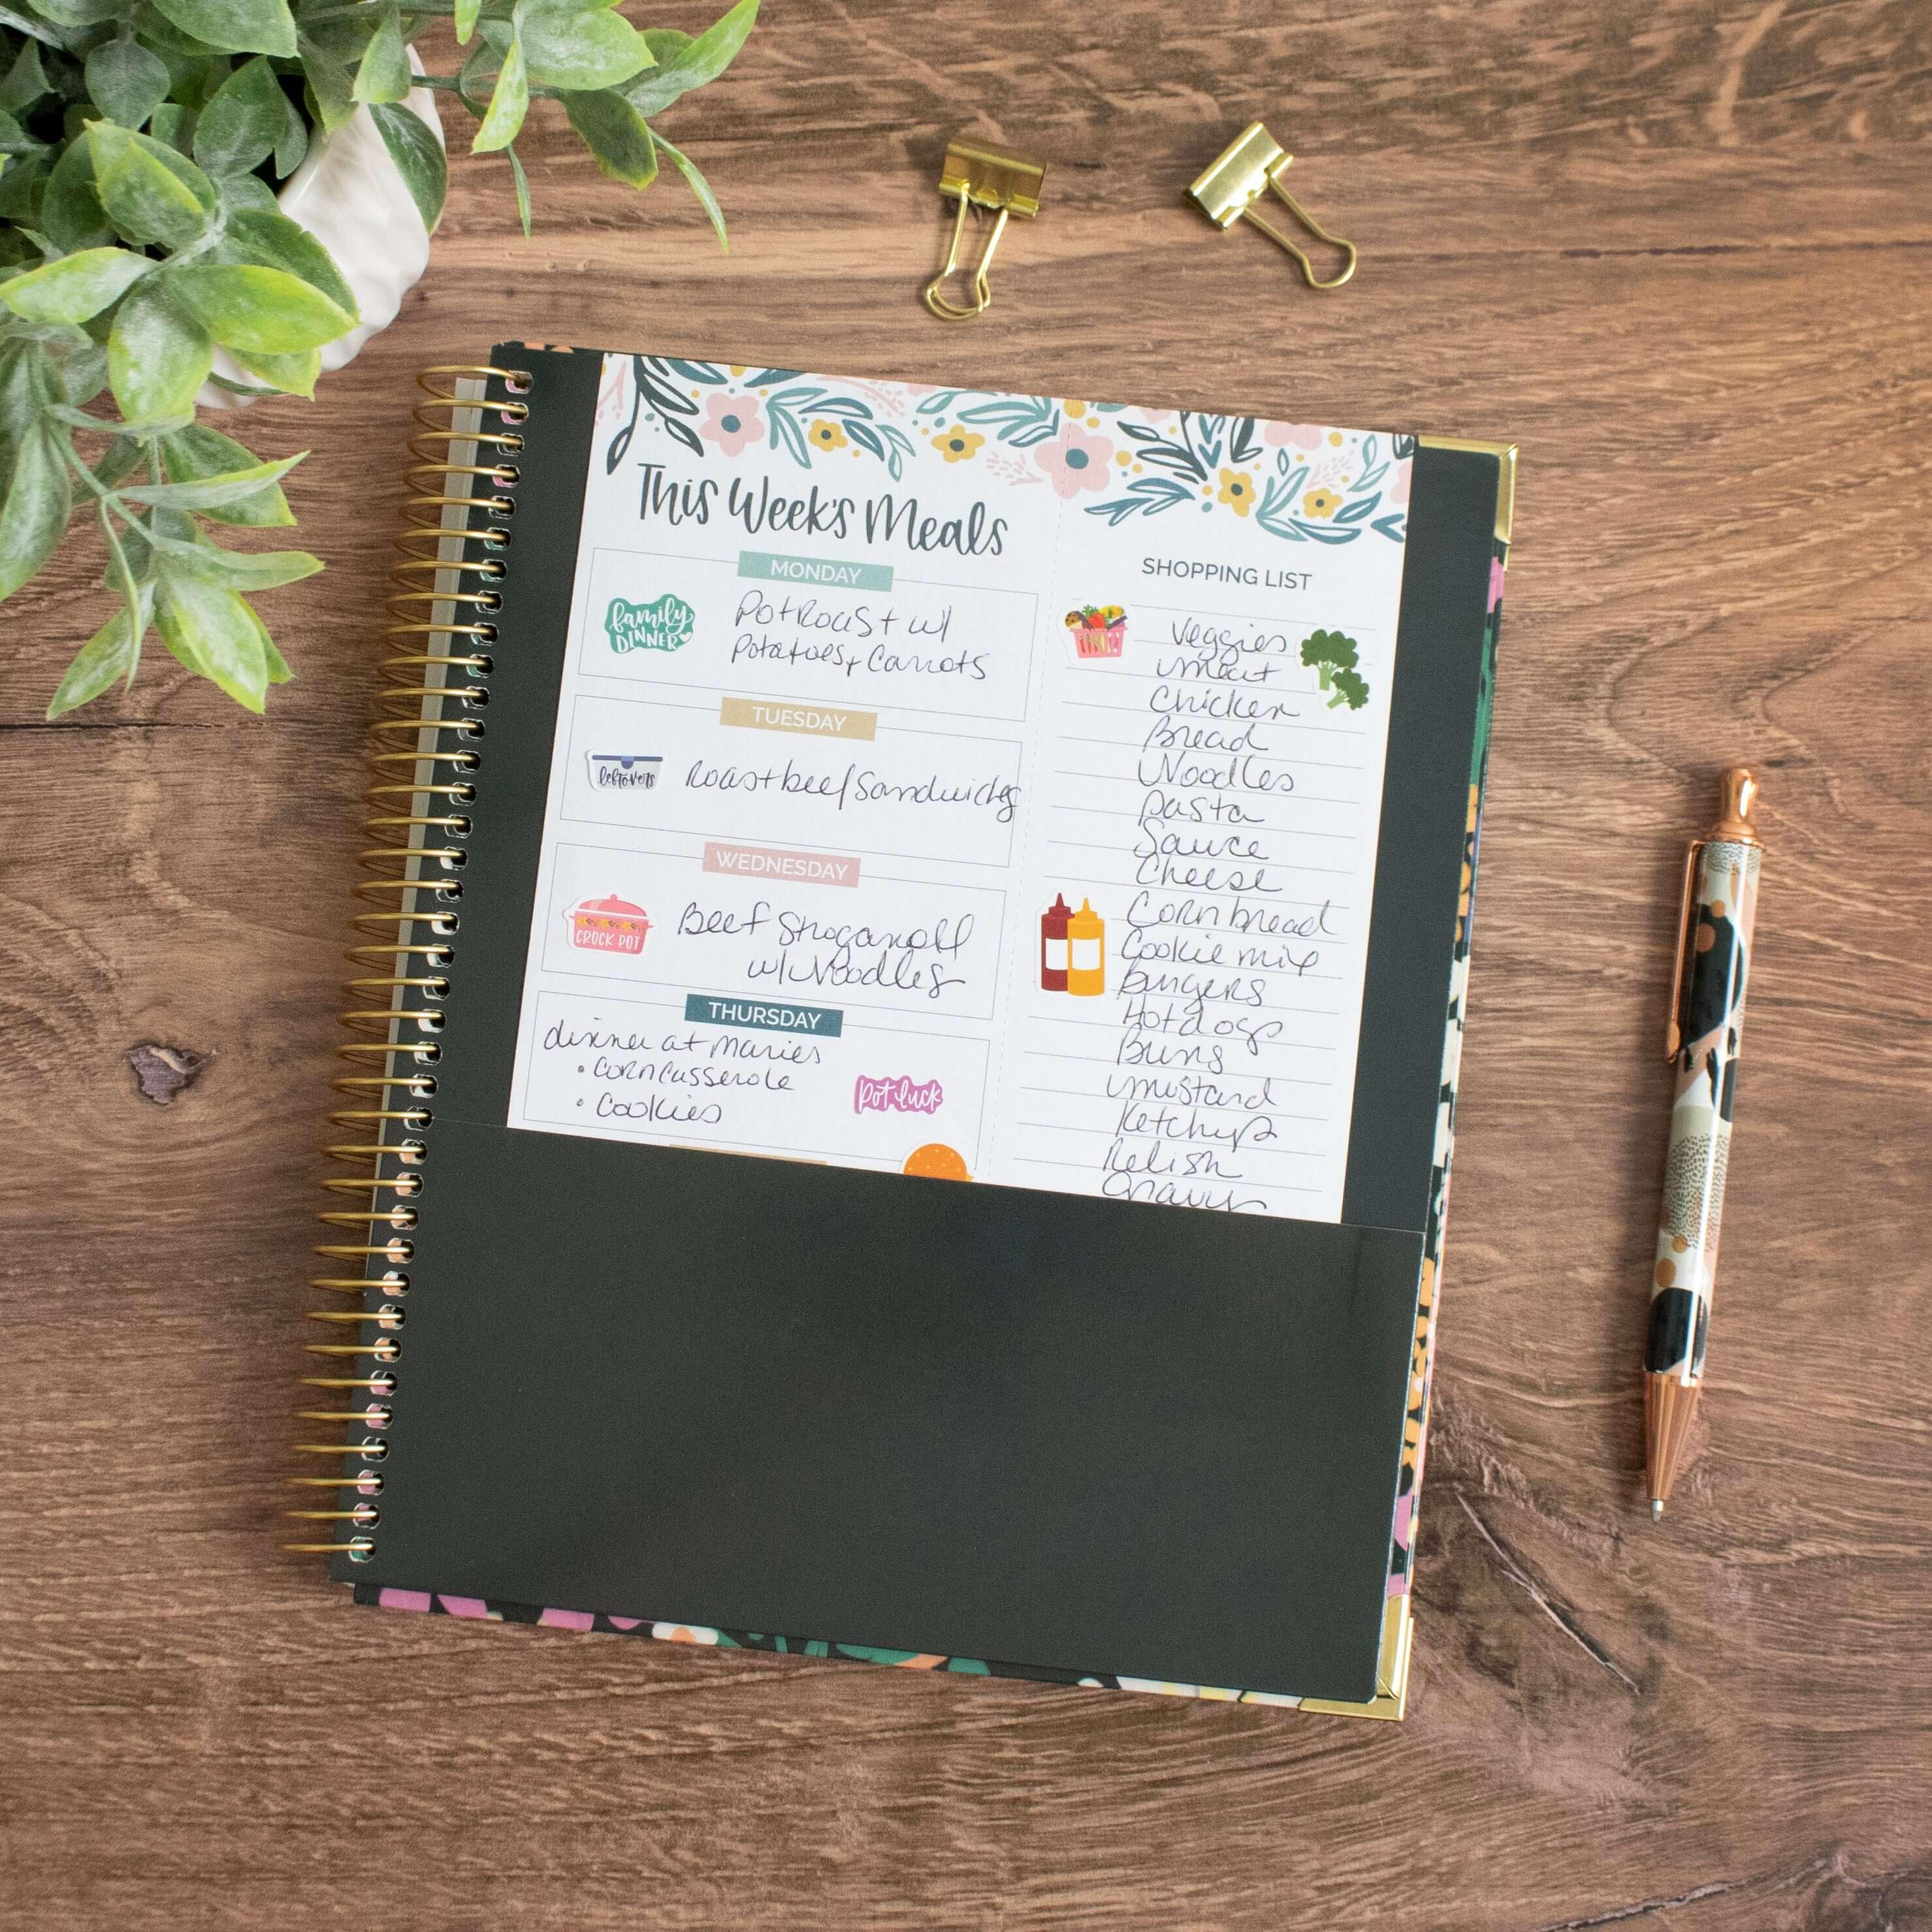 This Week's Meals
MONDAY
family
DINNER
Pot Roast w/
Potatoes + Carrots
TUESDAY
leftovers
Roast beef Sandwiches
WEDNESDAY
CROCK POT
Beef Stroganoff
w/ Noodles
THURSDAY
dinner at Maries
• corn casserole
• Cookies
Pot luck
SHOPPING LIST
Veggies
meat
Chicken
Bread
Noodles
Pasta
Sauce
Cheese
Corn bread
Cookie mix
Burgers
Hotdogs
Buns
mustard
Ketchup
Relish
Gravy